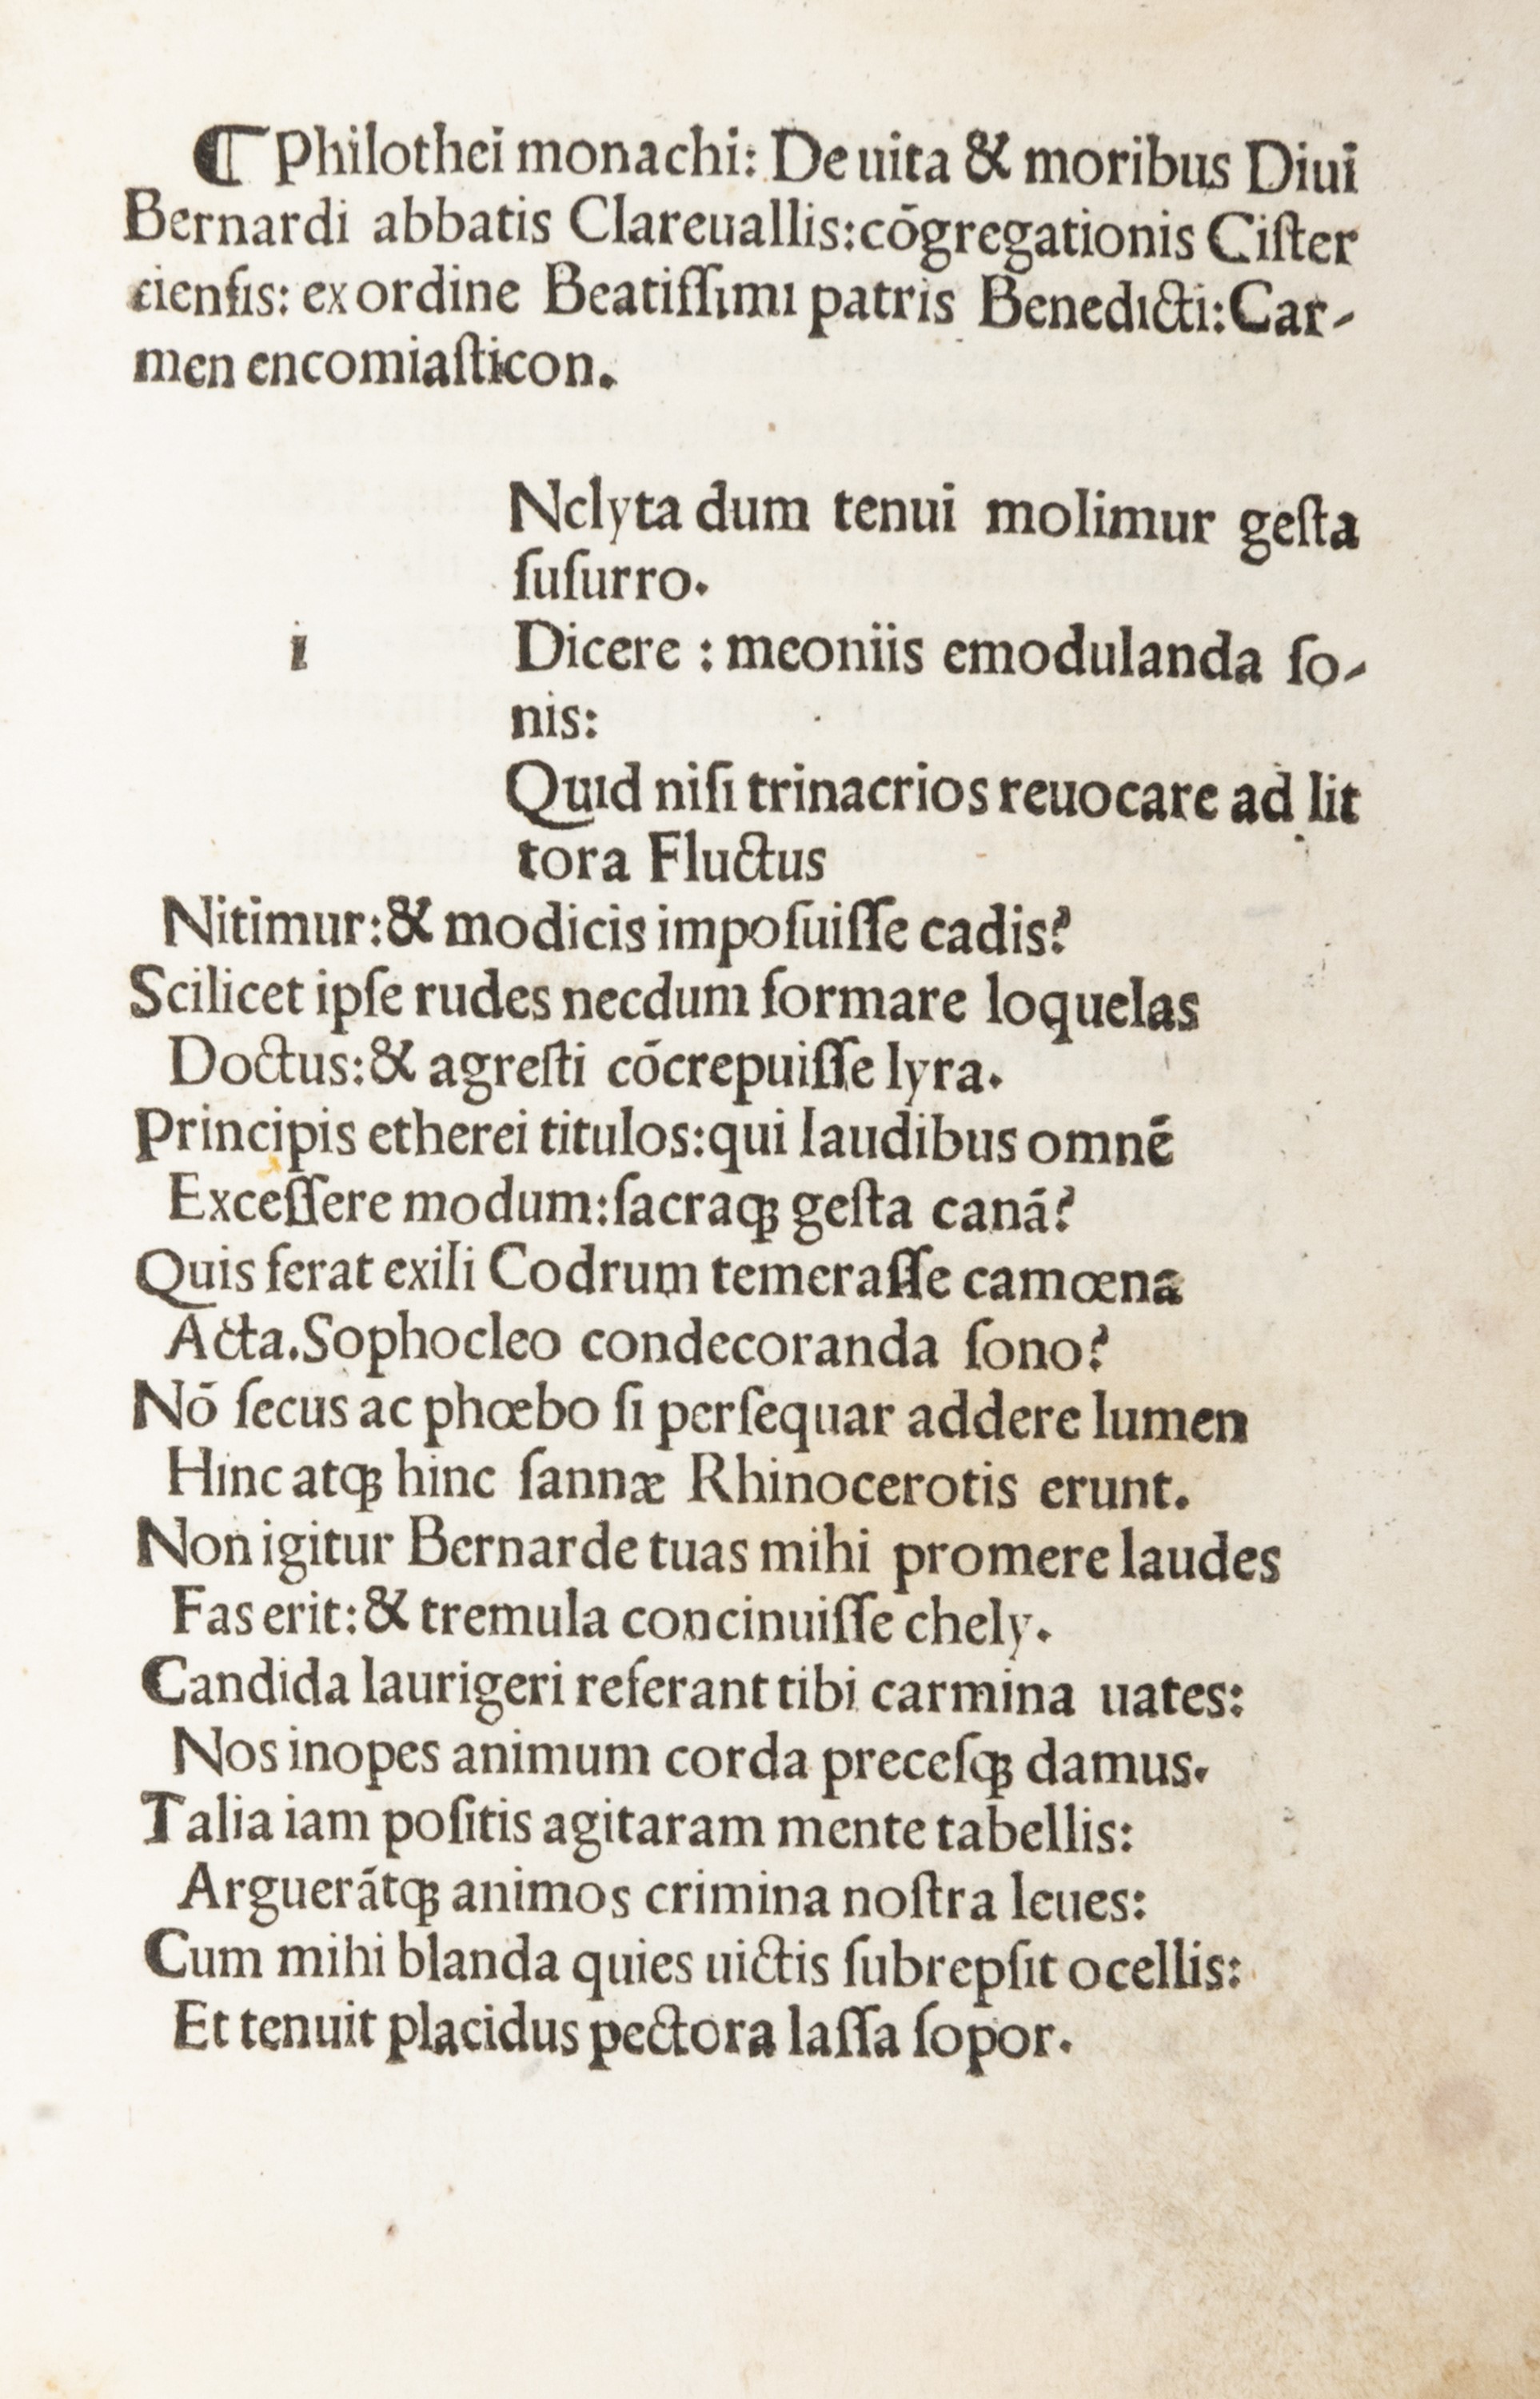 ¶ Philothei monachi: De uita & moribus Diui
Bernardi abbatis Clareuallis:cōgregationis Ciſter
cienſis: ex ordine Beatiſſimi patris Benedicti:Car-
men encomiaſticon.
Nclyta dum tenui molimur geſta
ſuſurro.
i
Dicere : meoniis emodulanda ſo-
nis:
Quid niſi trinacrios reuocare ad lit
tora Fluctus
Nitimur:& modicis impoſuiſſe cadis?
Scilicet ipſe rudes necdum formare loquelas
Doctus:& agreſti cōcrepuiſſe lyra.
Principis etherei titulos:qui laudibus omnē
Exceſſere modum:ſacraqꝫ geſta canā?
Quis ferat exili Codrum temeraſſe camœna
Acta.Sophocleo condecoranda ſono?
Nō ſecus ac phœbo ſi perſequar addere lumen
Hinc atqꝫ hinc ſannæ Rhinocerotis erunt.
Non igitur Bernarde tuas mihi promere laudes
Fas erit:& tremula concinuiſſe chely.
Candida laurigeri referant tibi carmina uates:
Nos inopes animum corda preceſqꝫ damus.
Talia iam poſitis agitaram mente tabellis:
Arguerātqꝫ animos crimina noſtra leues:
Cum mihi blanda quies uictis ſubrepſit ocellis:
Et tenuit placidus pectora laſſa ſopor.